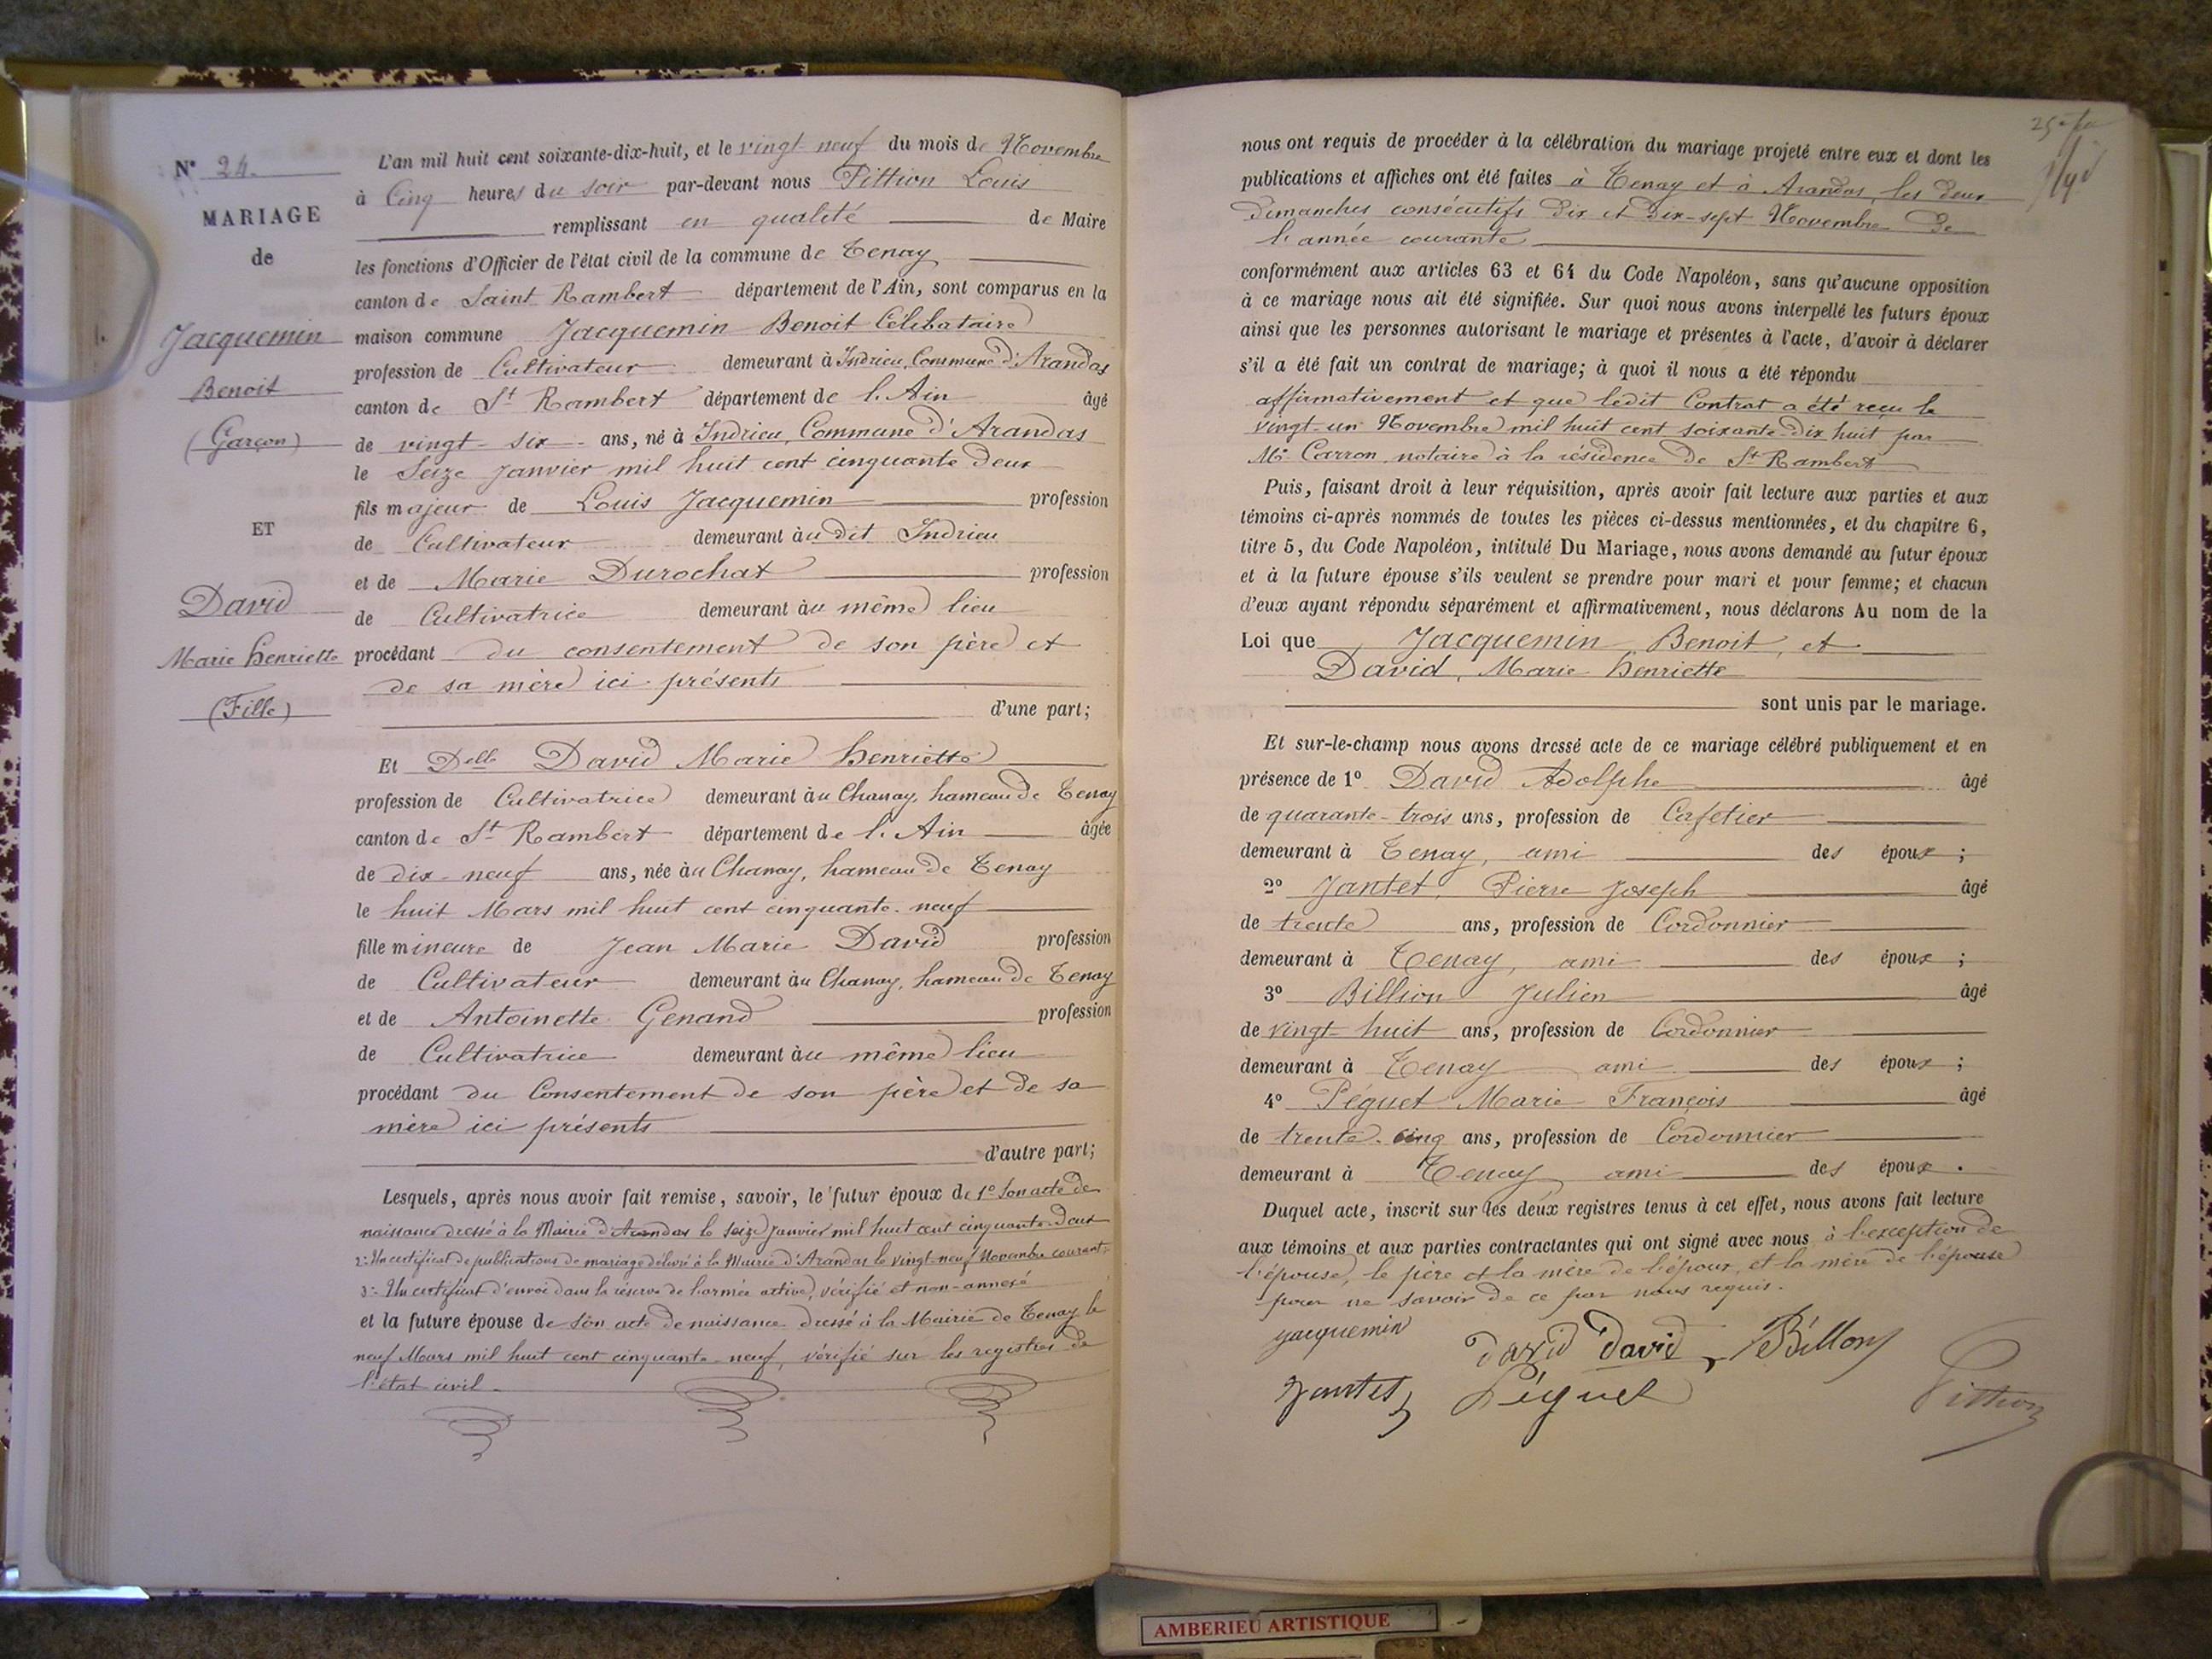 N° 24.
MARIAGE
de
Jacquemin
Benoit
(Garçon)
ET
David
Marie henriette
(Fille)
L'an mil huit cent soixante-dix-huit, et le vingt neuf du mois de Novembre
à Cinq heures du soir par-devant nous Pittion Louis
remplissant en qualité de Maire
les fonctions d'Officier de l'état civil de la commune de Tenay
canton de Saint Rambert département de l'Ain, sont comparus en la
maison commune Jacquemin Benoit Célibataire
profession de Cultivateur demeurant à Indrieu, Commune d'Arandas
canton de St Rambert département de l'Ain âgé
de vingt-six ans, né à Indrieu, Commune d'Arandas
le Seize Janvier mil huit cent cinquante deux
fils majeur de Louis Jacquemin profession
de Cultivateur demeurant audit Indrieu
et de Marie Durochat profession
de Cultivatrice demeurant au même lieu
procédant du consentement de son père et
de sa mère ici présents
d'une part;
Et Delle David Marie henriette
profession de Cultivatrice demeurant au Chanay, hameau de Tenay
canton de St Rambert département de l'Ain âgée
de dix-neuf ans, née au Chanay, hameau de Tenay
le huit Mars mil huit cent cinquante-neuf
fille mineure de Jean Marie David profession
de Cultivateur demeurant au Chanay, hameau de Tenay
et de Antoinette Genand profession
de Cultivatrice demeurant au même lieu
procédant du Consentement de son père et de sa
mère ici présents
d'autre part;
Lesquels, après nous avoir fait remise, savoir, le futur époux de 1° Son acte de
naissance dressé à la Mairie d'Arandas le Seize Janvier mil huit cent cinquante-deux
2° Un certificat de publications de mariage délivré à la Mairie d'Arandas le vingt-neuf Novembre courant;
3° Un certificat d'envoi dans la réserve de l'armée active, vérifié et non-annexé
et la future épouse de Son acte de naissance dressé à la Mairie de Tenay le
neuf Mars mil huit cent cinquante-neuf, vérifié sur les registres de
l'état civil.
nous ont requis de procéder à la célébration du mariage projeté entre eux et dont les
publications et affiches ont été faites à Tenay et à Arandas, les deux
Dimanches consécutifs Dix et Dix-sept Novembre de
l'année courante
conformément aux articles 63 et 64 du Code Napoléon, sans qu'aucune opposition
à ce mariage nous ait été signifiée. Sur quoi nous avons interpellé les futurs époux
ainsi que les personnes autorisant le mariage et présentes à l'acte, d'avoir à déclarer
s'il a été fait un contrat de mariage; à quoi il nous a été répondu
affirmativement et que ledit Contrat a été reçu le
vingt-un Novembre mil huit cent soixante-dix huit par
Me Carron, notaire à la résidence de St Rambert
Puis, faisant droit à leur réquisition, après avoir fait lecture aux parties et aux
témoins ci-après nommés de toutes les pièces ci-dessus mentionnées, et du chapitre 6,
titre 5, du Code Napoléon, intitulé Du Mariage, nous avons demandé au futur époux
et à la future épouse s'ils veulent se prendre pour mari et pour femme; et chacun
d'eux ayant répondu séparément et affirmativement, nous déclarons Au nom de la
Loi que Jacquemin Benoit, et
David, Marie henriette
sont unis par le mariage.
Et sur-le-champ nous avons dressé acte de ce mariage célébré publiquement et en
présence de 1° David Adolphe âgé
de quarante-trois ans, profession de Cafetier
demeurant à Tenay, ami des époux;
2° Jantet, Pierre Joseph âgé
de trente ans, profession de Cordonnier
demeurant à Tenay, ami des époux;
3° Billion Julien âgé
de vingt-huit ans, profession de Cordonnier
demeurant à Tenay ami des époux;
4° Péguet Marie François âgé
de trente-cinq ans, profession de Cordonnier
demeurant à Tenay ami des époux.
Duquel acte, inscrit sur les deux registres tenus à cet effet, nous avons fait lecture
aux témoins et aux parties contractantes qui ont signé avec nous à l'exception de
l'épouse, le père et la mère de l'époux, et la mère de l'épouse
pour ne savoir de ce par nous requis.
Jacquemin David David Billion
Jantet Péguet Pittion
AMBERIEU ARTISTIQUE